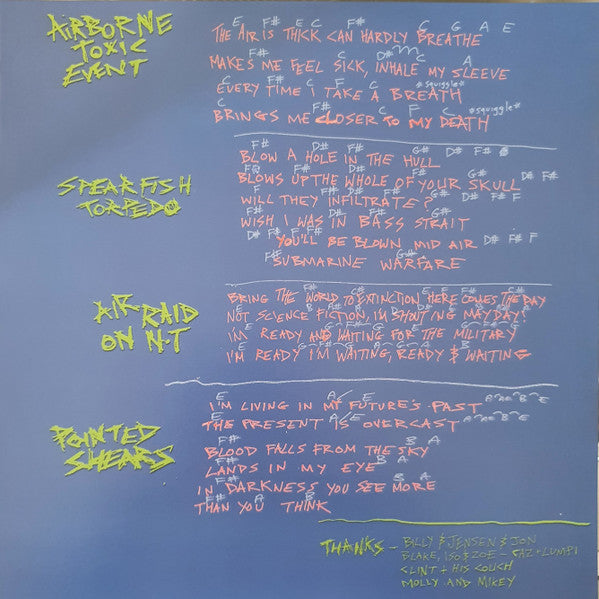 AIRBORNE
TOXIC
EVENT
E F# E C F# C G A E
THE AIR IS THICK CAN HARDLY BREATHE
C F# C D# C A
MAKES ME FEEL SICK, INHALE MY SLEEVE
C F# C F C *squiggle*
EVERY TIME I TAKE A BREATH
C F# C F C *squiggle*
BRINGS ME CLOSER TO MY DEATH
SPEARFISH
TORPEDO
F# F# G# D# F#
BLOW A HOLE IN THE HULL
F# F# D# F# G# D# F#
BLOWS UP THE WHOLE OF YOUR SKULL
F F# G# D# F# F
WILL THEY INFILTRATE?
F# F# G# D# F#
WISH I WAS IN BASS STRAIT
D# F# F F#
YOU'LL BE BLOWN MID AIR D# F# F
F#
SUBMARINE WARFARE
AIR RAID
ON N.T
BRING THE WORLD TO EXTINCTION HERE COMES THE DAY
NOT SCIENCE FICTION, I'M SHOUTING MAYDAY!
I'M READY AND WAITING FOR THE MILITARY
I'M READY I'M WAITING, READY & WAITING
POINTED
SHEARS
E A E
I'M LIVING IN MY FUTURE'S PAST
E A E
THE PRESENT IS OVERCAST
F# B A
BLOOD FALLS FROM THE SKY
F# B A
LANDS IN MY EYE
F# B A
IN DARKNESS YOU SEE MORE
F# A B
THAN YOU THINK
THANKS - BILLY & JENSEN & JON
BLAKE, ISO & ZOE - CAZ + LUMPI
CLINT + HIS COUCH
MOLLY AND MIKEY